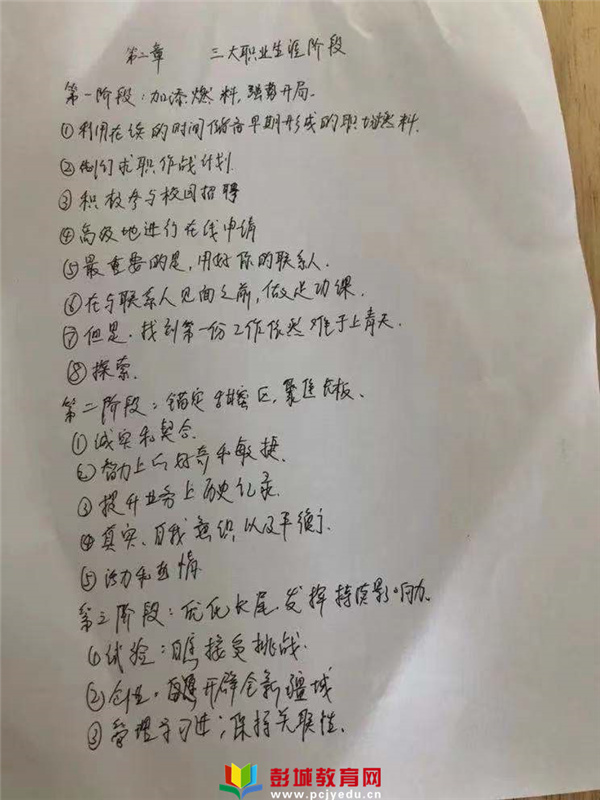 第二章 三大职业生涯阶段
第一阶段：加添燃料，强势开局.
①利用在读的时间储存早期形成的职场燃料.
②制订求职作战计划.
③积极参与校园招聘
④高级地进行在线申请
⑤最重要的是，用好你的联系人.
⑥在与联系人见面之前，做足功课.
⑦但是，找到第一份工作依然难于上青天.
⑧探索.
第二阶段：锚定甜蜜区，聚焦长板.
①诚实和契合.
②智力上的好奇和敏捷.
③提升业务上历史纪录.
④真实、自我意识以及平衡
⑤活力和热情
第三阶段：优化长尾，发挥持续影响力.
①试验：接受挑战.
②创业，开辟全新疆域
③学习；保持关联性.
彭城教育网
www.pcjyedu.cn